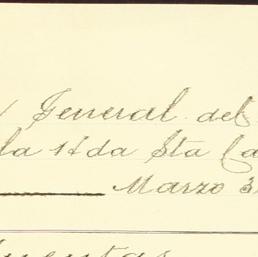 General del
la Hda Sta Ca
Marzo 3